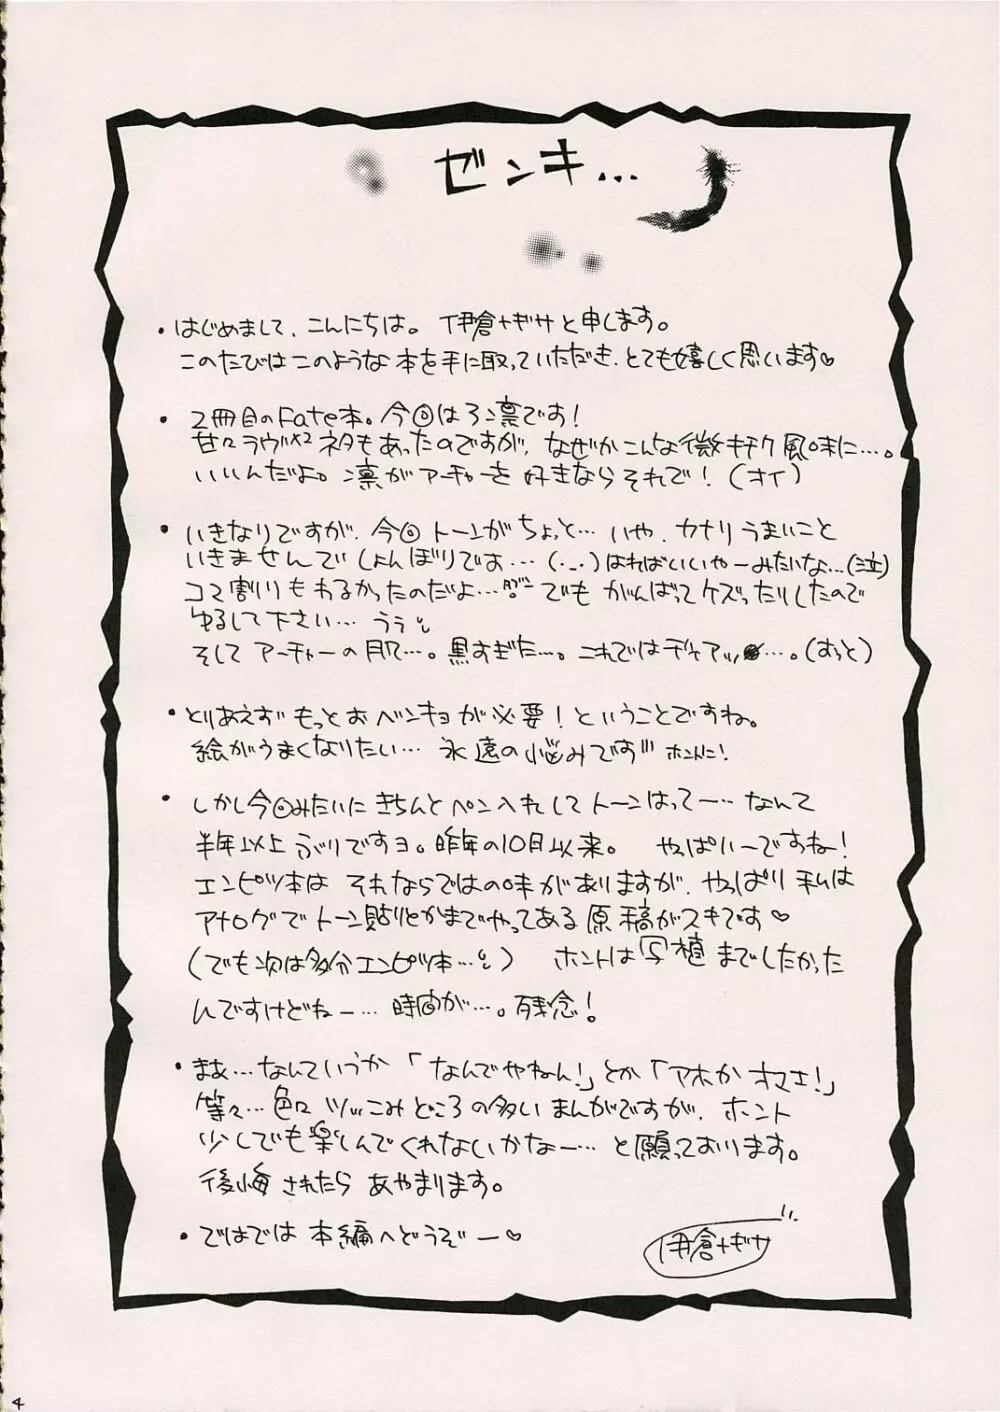 ゼンキ...
・はじめまして、こんにちは。 伊倉ナギサと申します。
このたびはこのような本を手に取っていただき、とても嬉しく思います♡
・2冊目のFate本。今回は弓凛です!
甘々ラヴ×2ネタもあったのですが、なぜかこんな微キチク風味に…。
いいんだよ。凛がアーチャーを好きならそれで!(オイ)
・いきなりですが、今回トーンがちょっと… いや、カナリうまいこと
いきませんでしょんぼりです…(・_・) はればいいやーみたいな…(泣)
コマ割りもわるかったのだよ… でもがんばってケズったりしたので
ゆるして下さい… うぅ
そしてアーチャーの肌…。黒すぎた…。これではヂャアッ…。(もっと)
・とりあえずもっとおベンキョが必要!ということですね。
絵がうまくなりたい… 永遠の悩みです ホントに!
・しかし今回みたいにきちんとペン入れしてトーンはってー… なんて
半年以上ぶりですヨ。昨年の10月以来。 やっぱいーですね!
エンピツ本はそれならではの味がありますが、やっぱり私は
アナログでトーン貼りとかまでやってある原稿がスキです♡
(でも次は多分エンピツ本…) ホントは写植までしたかった
んですけどねー… 時間が…。残念!
・まぁ…なんていうか「なんでやねん!」とか「アホかオマエ!」
等々…色々ツッこみどころの多いまんがですが、ホント
少しでも楽しんでくれないかなー… と願っております。
後悔されたらあやまります。
・ではでは本編へどうぞー♡
伊倉ナギサ
4